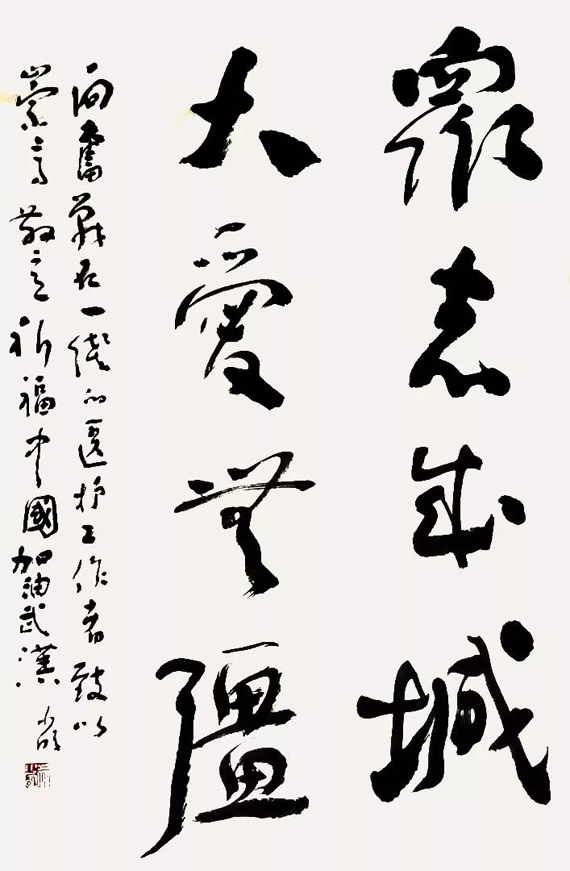 眾志成城
大愛無疆
向奮戰在一線的醫護工作者致以
崇高敬意祈福中國加油武漢